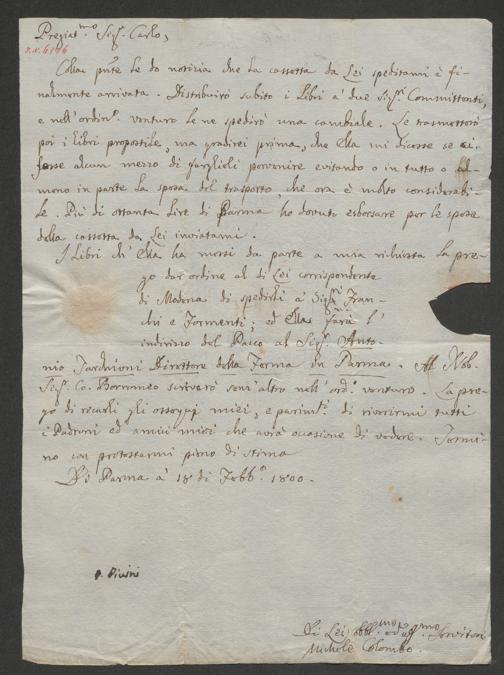 Pregiat.mo Sig.r Carlo,
P.N. 6196
Colla pn̄te Le do notizia che la cassetta da Lei speditami è fi-
nalmente arrivata. Distribuirò subito i Libri a' due Sig.ri Committenti,
e nell'ordin.o venturo Le ne spedirò una cambiale. Le trasmetterò
poi i libri propostile, ma gradirei prima, che Ella mi dicesse se ci
fosse alcun mezzo di farglieli pervenire evitando o in tutto o al-
meno in parte la spesa del trasporto, che ora è molto considerabi-
le. Più di ottanta Lire di Parma ho dovuto esborsare per le spese
della cassetta da Lei inviatami.
I Libri ch'Ella ha messi da parte a mia richiesta La pre-
go dar ordine al di Lei corrispondente
di Modena di spedirli a' Sig.ri Fran-
chi e Formenti; ed Ella farà l'
indirizzo del Pacco al Sig.r Anto-
nio Direttore della Ferma in Parma. Al Nob.
Sig.r Co. Borromeo scriverò senz'altro nell'ord.o venturo. La pre-
go di recarli gli ossequj miei, e parimt.i di riverirmi tutti
i Padroni ed amici miei che avrà occasione di vedere. Termi-
no con protestarmi pieno di stima
Di Parma a' 18 di Febb.o 1800.
Di Lei obbl.mo ed aff.mo Servitore
Michele Colombo.